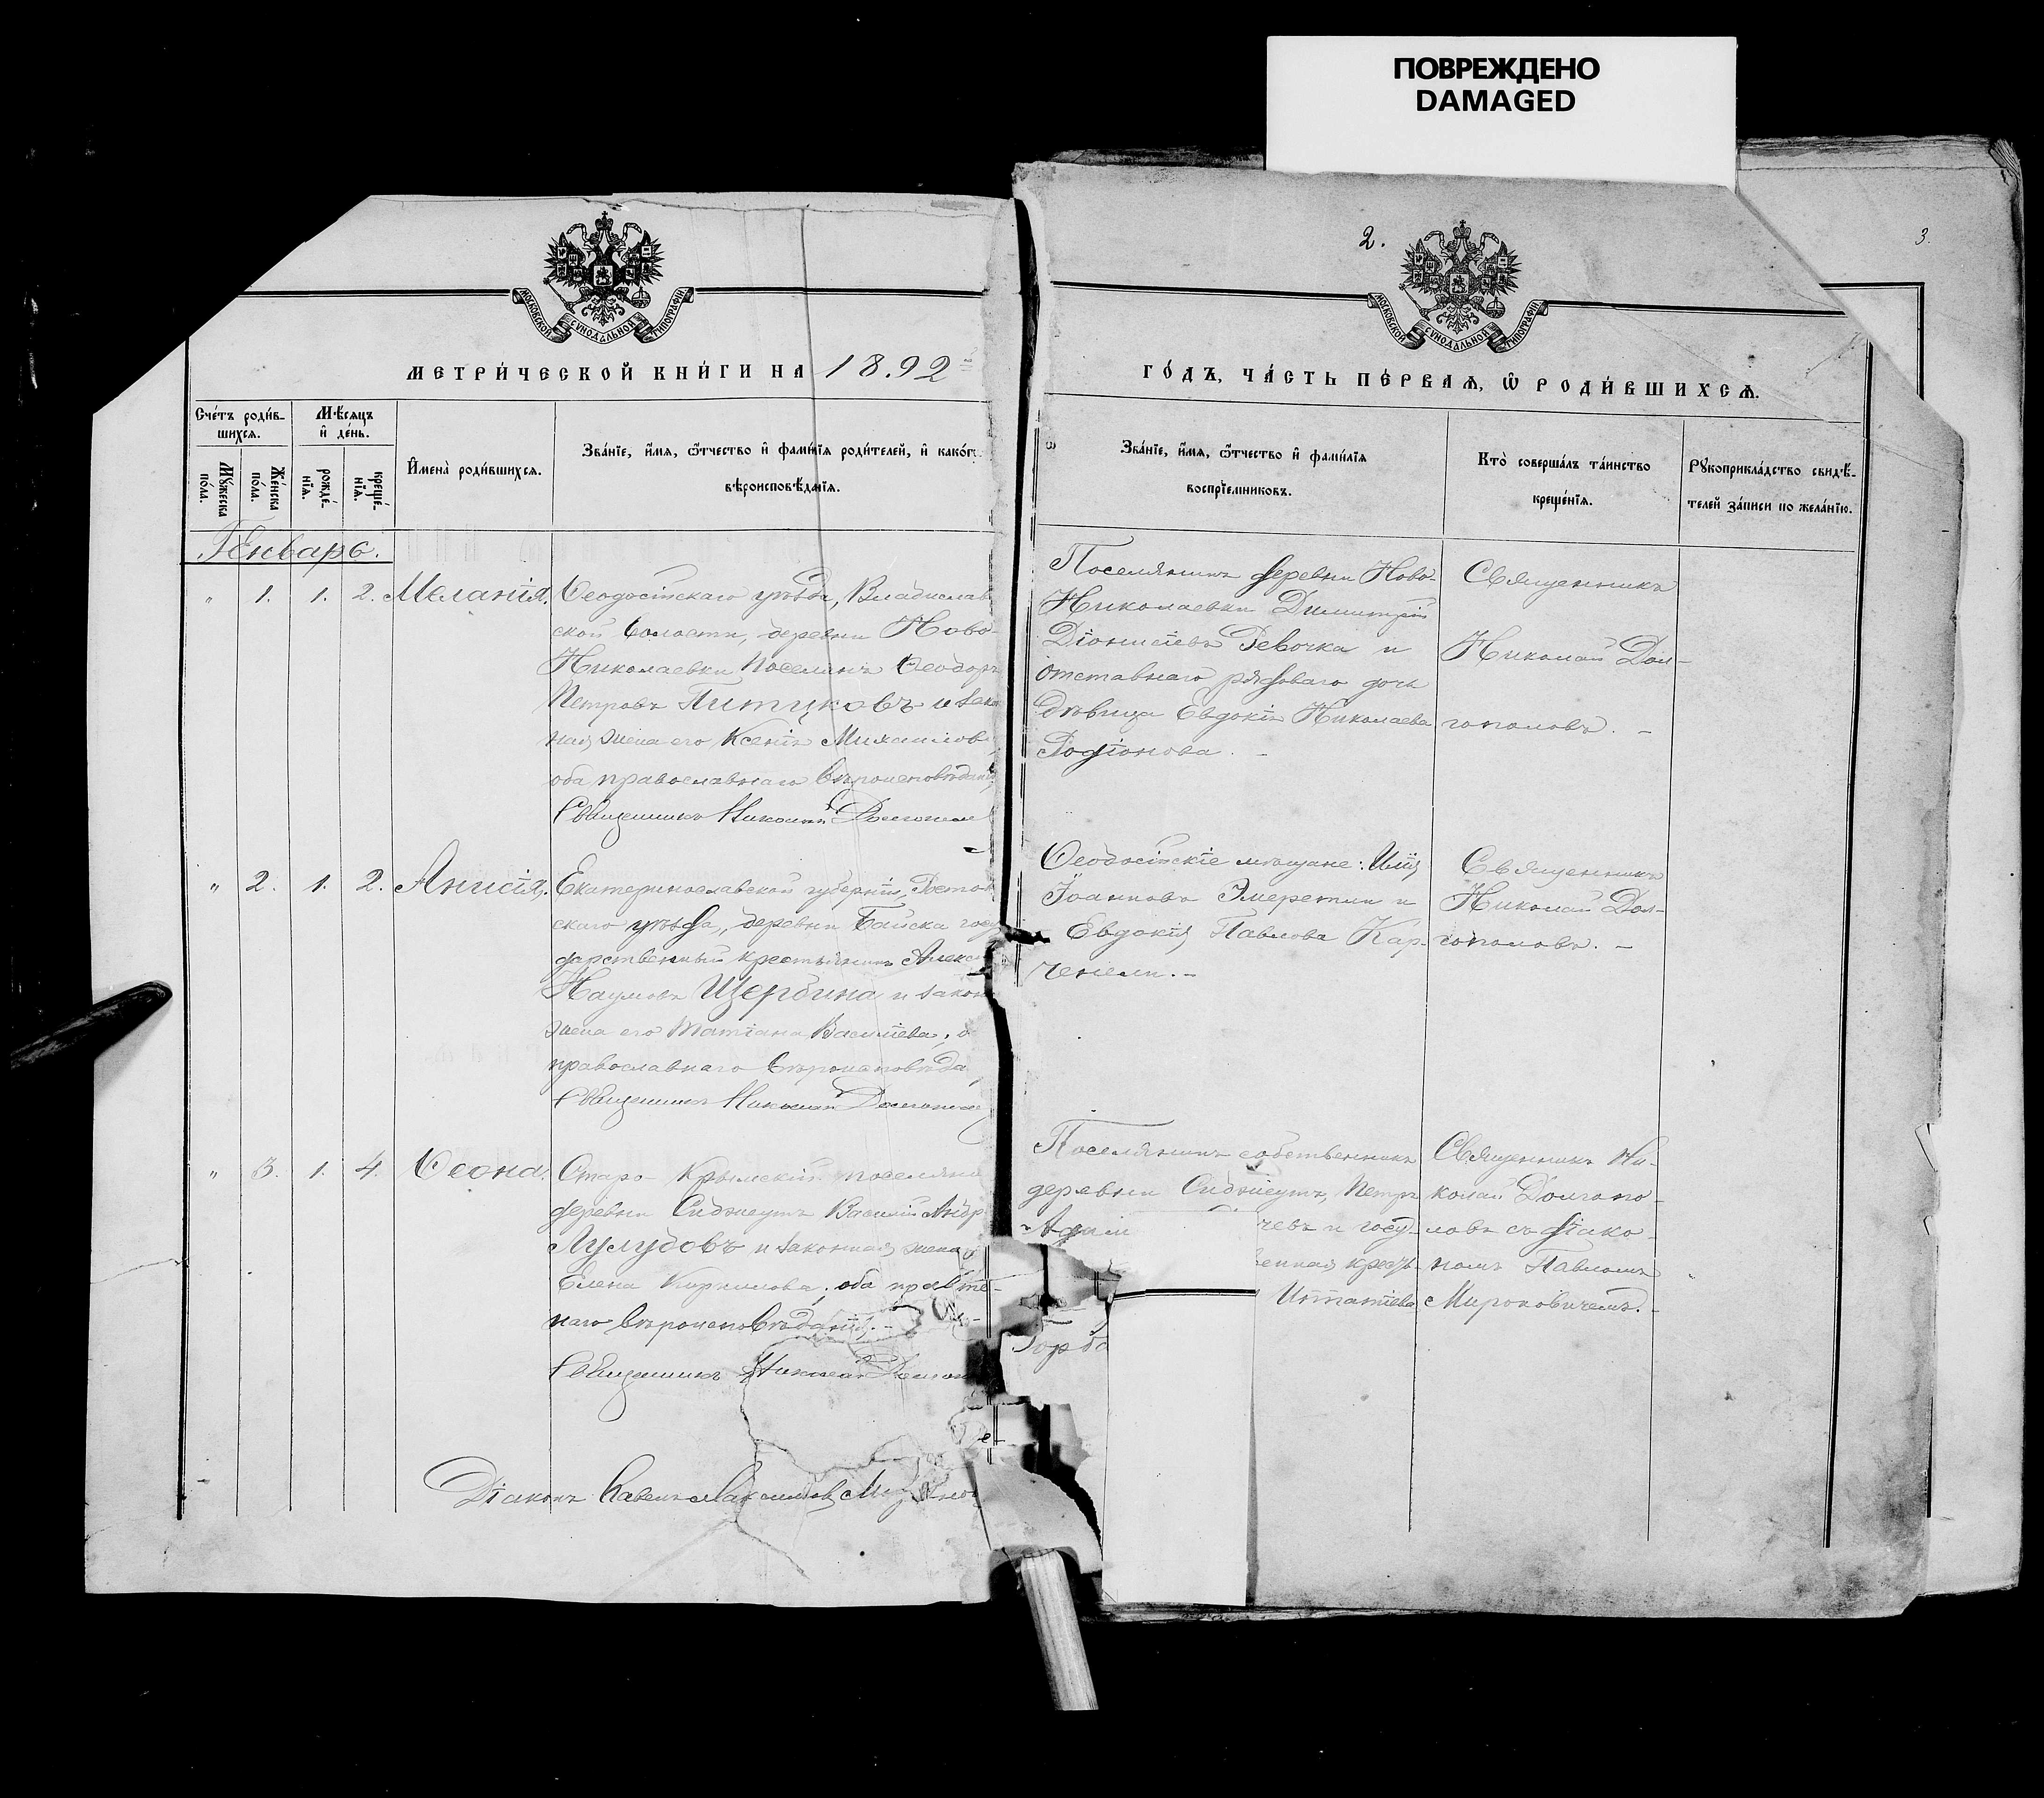 ПОВРЕЖДЕНО
DAMAGED
2.
3.
МОСКОВСКОЙ СѴНОДАЛЬНОЙ ТИПОГРАФІИ
МОСКОВСКОЙ СѴНОДАЛЬНОЙ ТИПОГРАФІИ
МЕТРИ́ЧЕСКОЙ КНИ́ГИ НА 1892
ГО́ДЪ, ЧА́СТЬ ПЕ́РВАѦ, Ѿ РОДИ́ВШИХСѦ.
Сче́тъ роди́в-
шихсѧ.
Мѣ́сяцъ
и҆ де́нь.
Мꙋ́жеска
по́ла.
Же́нска
по́ла.
рожде́-
нїѧ.
креще́-
нїѧ.
И҆мена̀ роди́вшихсѧ.
Зва́нїе, и҆́мѧ, ѻ҆́тчество и҆ фами́лїѧ роди́телей, и҆ како́гѡ
вѣроисповѣ́данїѧ.
Зва́нїе, и҆́мѧ, ѻ҆́тчество и҆ фами́лїѧ
воспрїе́мниковъ.
Кто̀ соверша́лъ та́инство
креще́нїѧ.
Рꙋкоприкла́дство свидѣ́-
телей за́писи по жела́нїю.
Генварь.
" 1. 1. 2. Меланія.
Ѳеодосійскаго уѣзда, Владислав
ской волости, деревни Ново-
Николаевки поселянъ Ѳеодоръ
Петровъ Питуковъ и зако
ная жена его Ксенія Михаилова
оба православнаго вѣроисповѣданія
Священникъ Николай Долгопол
Поселянинъ деревни Ново-
Николаевки Димитрій
Діонисіевъ Ревочка и
отставнаго рядоваго дочь
дѣвица Евдокія Николаева
Родіонова. -
Священникъ
Николай Дол-
гополовъ. -
" 2. 1. 2. Анисія.
Екатеринославской губерніи, Ростов
скаго уѣзда, деревни Байска госу
дарственный крестьянинъ Алекс
Наумовъ Щербина и закон
жена его Татіана Василіева, о
православнаго вѣроисповѣда
Священникъ Николай Долгопол
Ѳеодосійскіе мѣщане: Илія
Іоанновъ Эмеретли и
Евдокія Павлова Кар-
ченели. -
Священникъ
Николай Дол-
гополовъ. -
" 3. 1. 4. Ѳеона.
Старо-Крымскій поселяни
деревни Сиджеутъ Василій Андр
Лулудовъ и законная жена
Елена Кириллова, оба правт
наго вѣроисповѣданія. -
Священникъ Николай Долгоп
Поселянинъ собственникъ
деревни Сиджеутъ, Петръ
Адам чевъ и госу-
енная кресть-
Игнатіева
Горба
Священникъ Ни-
колай Долгопо-
ловъ съ діако-
номъ Павломъ
Мироковичемъ. -
Діаконъ Павелъ Максимовъ Ми